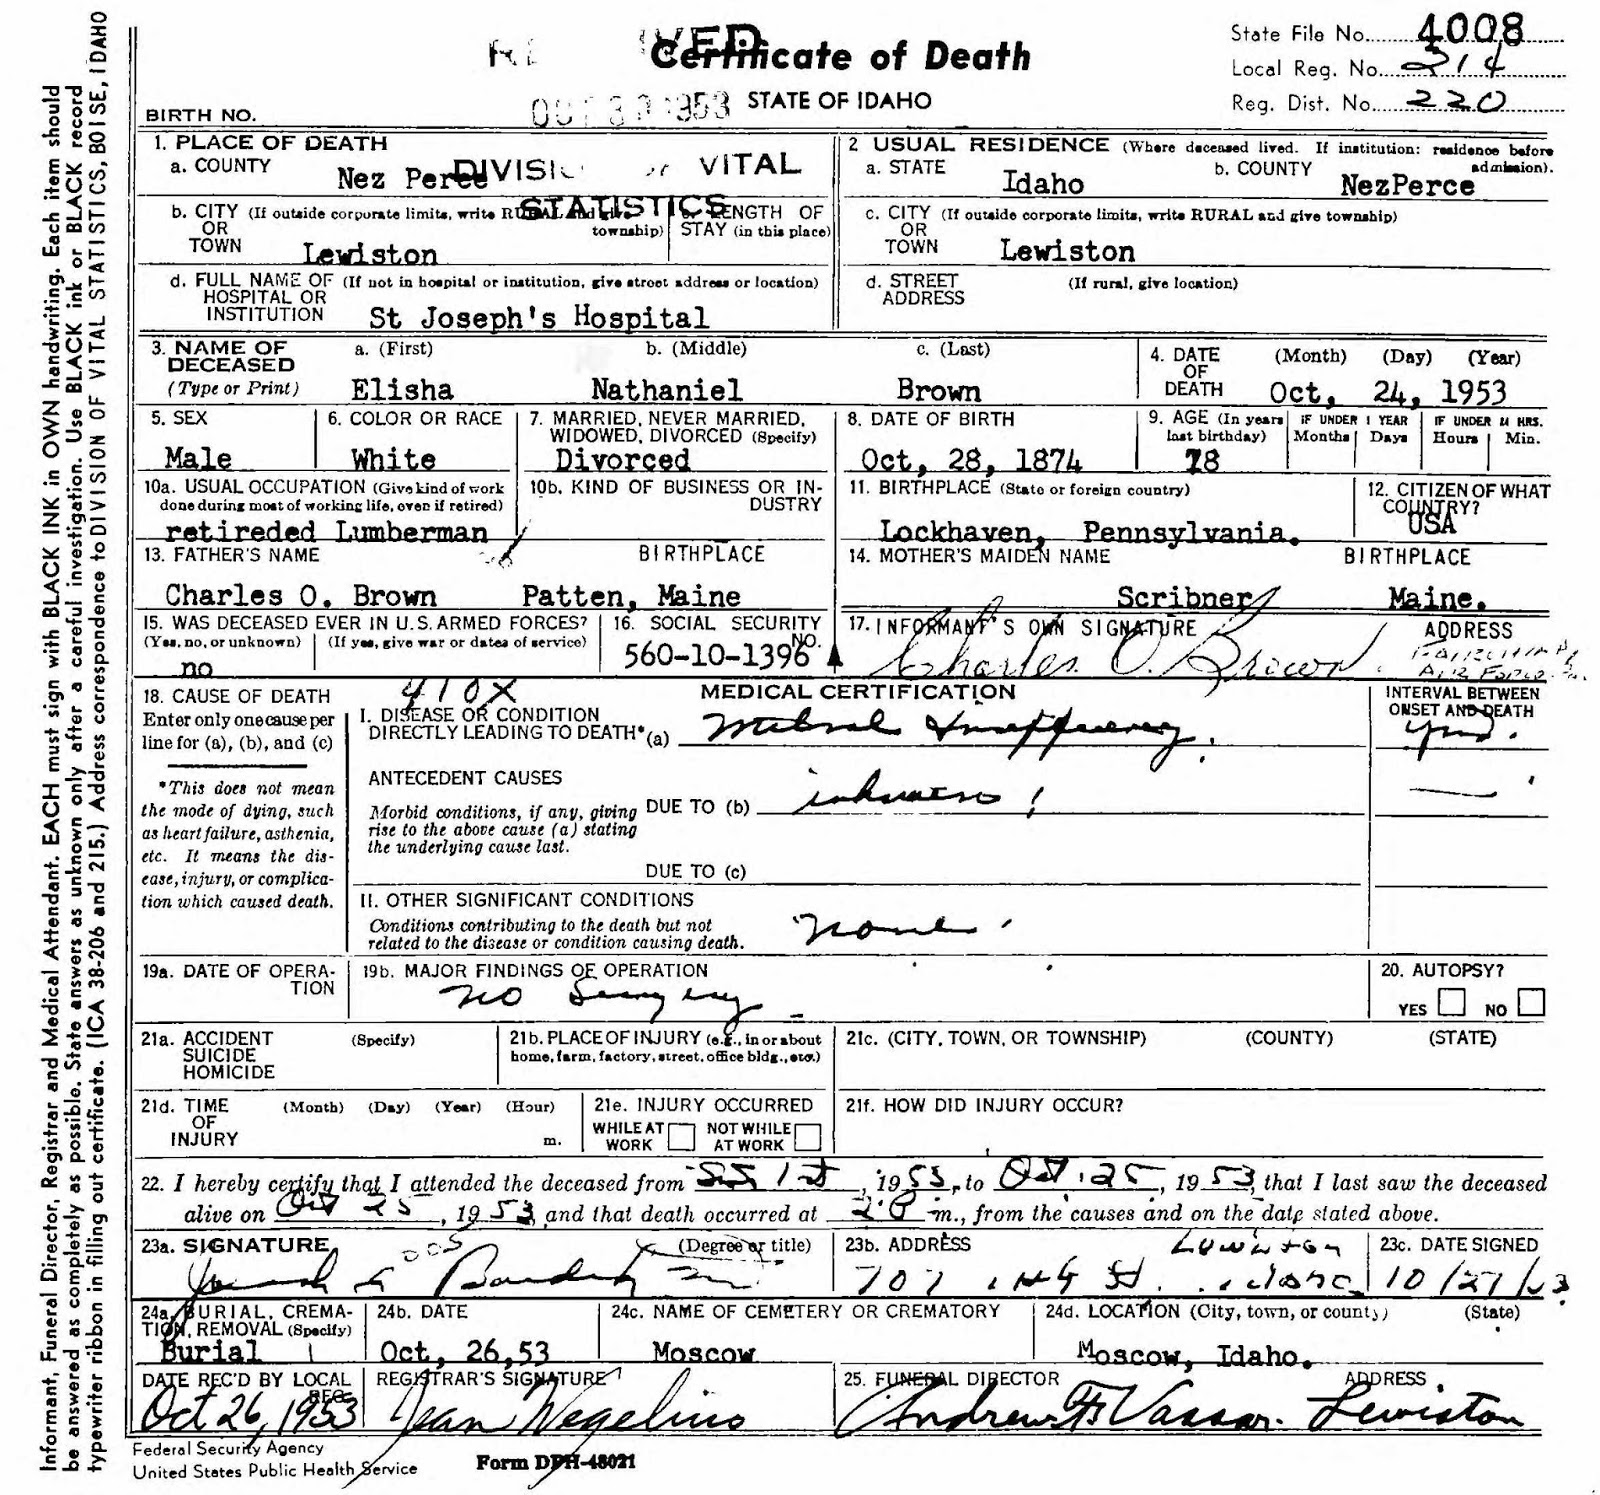 Certificate of Death
STATE OF IDAHO
State File No. 4008
Local Reg. No. 214
Reg. Dist. No. 220
BIRTH NO.
OCT 30 1953
DIVISION OF VITAL
STATISTICS
1. PLACE OF DEATH
a. COUNTY Nez Perce
b. CITY (If outside corporate limits, write RURAL and give township)
OR
TOWN Lewiston
c. LENGTH OF
STAY (in this place)
d. FULL NAME OF (If not in hospital or institution, give street address or location)
HOSPITAL OR
INSTITUTION St Joseph's Hospital
2 USUAL RESIDENCE (Where deceased lived. If institution: residence before admission).
a. STATE Idaho
b. COUNTY NezPerce
c. CITY (If outside corporate limits, write RURAL and give township)
OR
TOWN Lewiston
d. STREET (If rural, give location)
ADDRESS
3. NAME OF DECEASED
(Type or Print)
a. (First) b. (Middle) c. (Last)
Elisha Nathaniel Brown
4. DATE OF DEATH (Month) (Day) (Year)
Oct, 24, 1953
5. SEX
Male
6. COLOR OR RACE
White
7. MARRIED, NEVER MARRIED,
WIDOWED, DIVORCED (Specify)
Divorced
8. DATE OF BIRTH
Oct, 28, 1874
9. AGE (In years last birthday)
78
IF UNDER 1 YEAR
Months Days
IF UNDER 24 HRS.
Hours Min.
10a. USUAL OCCUPATION (Give kind of work
done during most of working life, even if retired)
retireded Lumberman
10b. KIND OF BUSINESS OR INDUSTRY
11. BIRTHPLACE (State or foreign country)
Lockhaven, Pennsylvania.
12. CITIZEN OF WHAT COUNTRY?
USA
13. FATHER'S NAME BIRTHPLACE
Charles O. Brown Patten, Maine
14. MOTHER'S MAIDEN NAME BIRTHPLACE
Scribner Maine.
15. WAS DECEASED EVER IN U.S. ARMED FORCES?
(Yes, no, or unknown) (If yes, give war or dates of service)
no
16. SOCIAL SECURITY NO.
560-10-1396
17. INFORMANT'S OWN SIGNATURE ADDRESS
Charles O. Brown
18. CAUSE OF DEATH
Enter only one cause per
line for (a), (b), and (c)
*This does not mean
the mode of dying, such
as heart failure, asthenia,
etc. It means the dis-
ease, injury, or complica-
tion which caused death.
410X
MEDICAL CERTIFICATION
I. DISEASE OR CONDITION
DIRECTLY LEADING TO DEATH* (a) Mitral Insufficiency.
ANTECEDENT CAUSES
Morbid conditions, if any, giving
rise to the above cause (a) stating
the underlying cause last.
DUE TO (b) unknown
DUE TO (c)
INTERVAL BETWEEN
ONSET AND DEATH
yrs.
II. OTHER SIGNIFICANT CONDITIONS
Conditions contributing to the death but not
related to the disease or condition causing death.
None
19a. DATE OF OPERA-
TION
19b. MAJOR FINDINGS OF OPERATION
No Surgery
20. AUTOPSY?
YES NO
21a. ACCIDENT (Specify)
SUICIDE
HOMICIDE
21b. PLACE OF INJURY (e.g., in or about
home, farm, factory, street, office bldg., etc.)
21c. (CITY, TOWN, OR TOWNSHIP) (COUNTY) (STATE)
21d. TIME (Month) (Day) (Year) (Hour)
OF
INJURY m.
21e. INJURY OCCURRED
WHILE AT WORK NOT WHILE AT WORK
21f. HOW DID INJURY OCCUR?
22. I hereby certify that I attended the deceased from , 1953, to Oct. 25, 1953, that I last saw the deceased
alive on Oct 25, 1953, and that death occurred at m., from the causes and on the date stated above.
23a. SIGNATURE (Degree or title)
23b. ADDRESS
707 St. Lewiston Idaho
23c. DATE SIGNED
10/27/53
24a. BURIAL, CREMA-
TION, REMOVAL (Specify)
Burial
24b. DATE
Oct, 26,53
24c. NAME OF CEMETERY OR CREMATORY
Moscow
24d. LOCATION (City, town, or county) (State)
Moscow, Idaho.
DATE REC'D BY LOCAL REG.
Oct 26, 1953
REGISTRAR'S SIGNATURE
Jean Wegelins
25. FUNERAL DIRECTOR ADDRESS
Andrew F. Vassar. Lewiston
Federal Security Agency
United States Public Health Service
Form DPH-48021
Informant, Funeral Director, Registrar and Medical Attendant. EACH must sign with BLACK INK in OWN handwriting. Each item should
be answered as completely as possible. State answers as unknown only after a careful investigation. Use BLACK ink or BLACK record
typewriter ribbon in filling out certificate. (ICA 38-206 and 215.) Address correspondence to DIVISION OF VITAL STATISTICS, BOISE, IDAHO